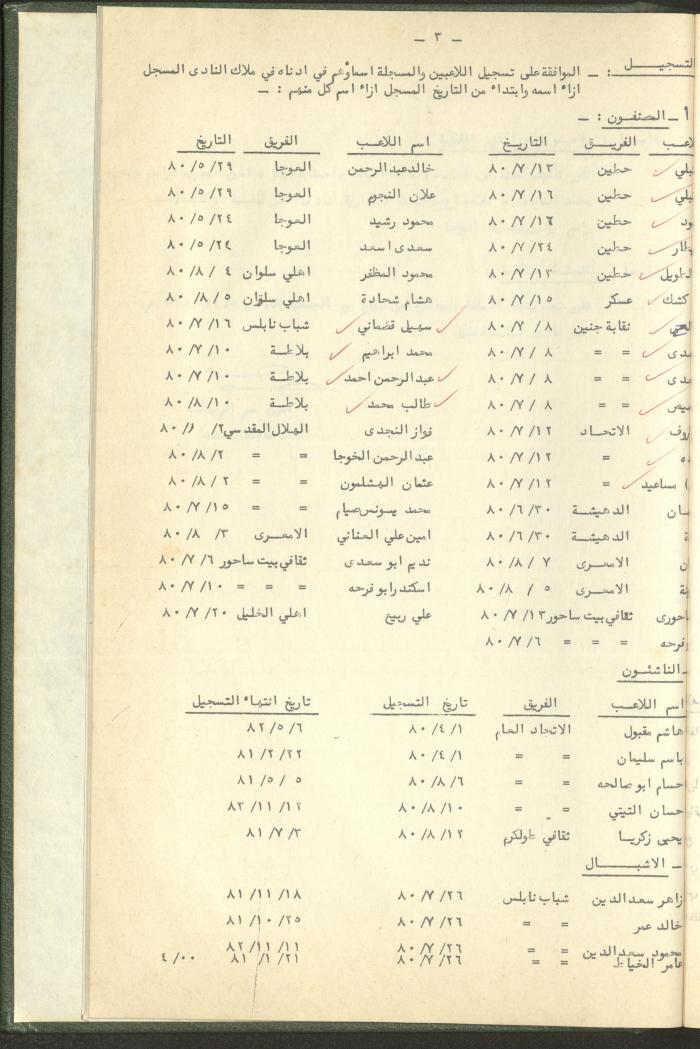 ـ ٣ ـ
التسجيـــل : ـ الموافقة على تسجيل اللاعبين والمسجلة اسماؤهم في ادناه في ملاك النادى المسجل
ازاء اسمه وابتداء من التاريخ المسجل ازاء اسم كل منهم : ـ
أ ـ المصنفون : ـ
الفريـــق التاريـخ اسم اللاعب الفريق التاريخ
حطين ٨٠/٧/١٣ خالد عبد الرحمن العوجا ٨٠/٥/٢٩
حطين ٨٠/٧/١٦ علان النجوم العوجا ٨٠/٥/٢٩
حطين ٨٠/٧/١٦ محمود رشيد العوجا ٨٠/٥/٢٤
حطين ٨٠/٧/٢٤ سعدى اسعد العوجا ٨٠/٥/٢٤
الطويل حطين ٨٠/٧/١٣ محمود المظفر اهلي سلوان ٨٠/٨/٤
كشك عسكر ٨٠/٧/١٥ هشام شحادة اهلي سلوان ٨٠/٨/٥
نقابة جنين ٨٠/٧/٨ سهيل قضماني شباب نابلس ٨٠/٧/١٦
= = ٨٠/٧/٨ محمد ابراهيم بلاطـة ٨٠/٧/١٠
= = ٨٠/٧/٨ عبد الرحمن احمد بلاطـة ٨٠/٧/١٠
= = ٨٠/٧/٨ طالب محمد بلاطـة ٨٠/٨/١٠
الاتحـاد ٨٠/٧/١٢ فواز النجدى الهلال المقدسي ٨٠/٨/٢
= ٨٠/٧/١٢ عبد الرحمن الخوجا = = ٨٠/٨/٢
مساعيد = ٨٠/٧/١٢ عثمان الهشلمون = = ٨٠/٨/٢
الدهيشـة ٨٠/٦/٣٠ محمد يـونس صيام = = ٨٠/٧/١٥
الدهيشة ٨٠/٦/٣٠ امين علي العناني الامعـرى ٨٠/٨/٣
الامعـرى ٨٠/٨/٧ نديم ابو سعدى ثقافي بيت ساحور ٨٠/٧/٦
الامعـرى ٨٠/٨/٥ اسكندر ابو فرحه = = = ٨٠/٧/١٠
ثقافي بيت ساحور ٨٠/٧/١٣ علي ربيع اهلي الخليل ٨٠/٧/٢٠
فرحه = = = ٨٠/٧/٦
ـ الناشئـون
اسم اللاعب الفريق تاريخ التسجيل تاريخ انتهاء التسجيل
هاشم مقبول الاتحاد العام ٨٠/٤/١ ٨٢/٥/٦
باسم سليمان = = ٨٠/٤/١ ٨١/٢/٢٢
حسام ابو صالحه = = ٨٠/٨/٦ ٨١/٥/٥
حسان التيتي = = ٨٠/٨/١٠ ٨٣/١١/١٢
يحيى زكريـا ثقافي طولكرم ٨٠/٨/١٢ ٨١/٧/٣
ـ الاشبـــال
زاهر سعد الدين شباب نابلس ٨٠/٧/٢٦ ٨١/١١/١٨
خالد عمر = = ٨٠/٧/٢٦ ٨١/١٠/٢٥
محمود سعد الدين = = ٨٠/٧/٢٦ ٨٢/١١/١١
عامر الخياط = = ٨٠/٧/٢٦ ٨١/١/٢١ ٤/٠٠